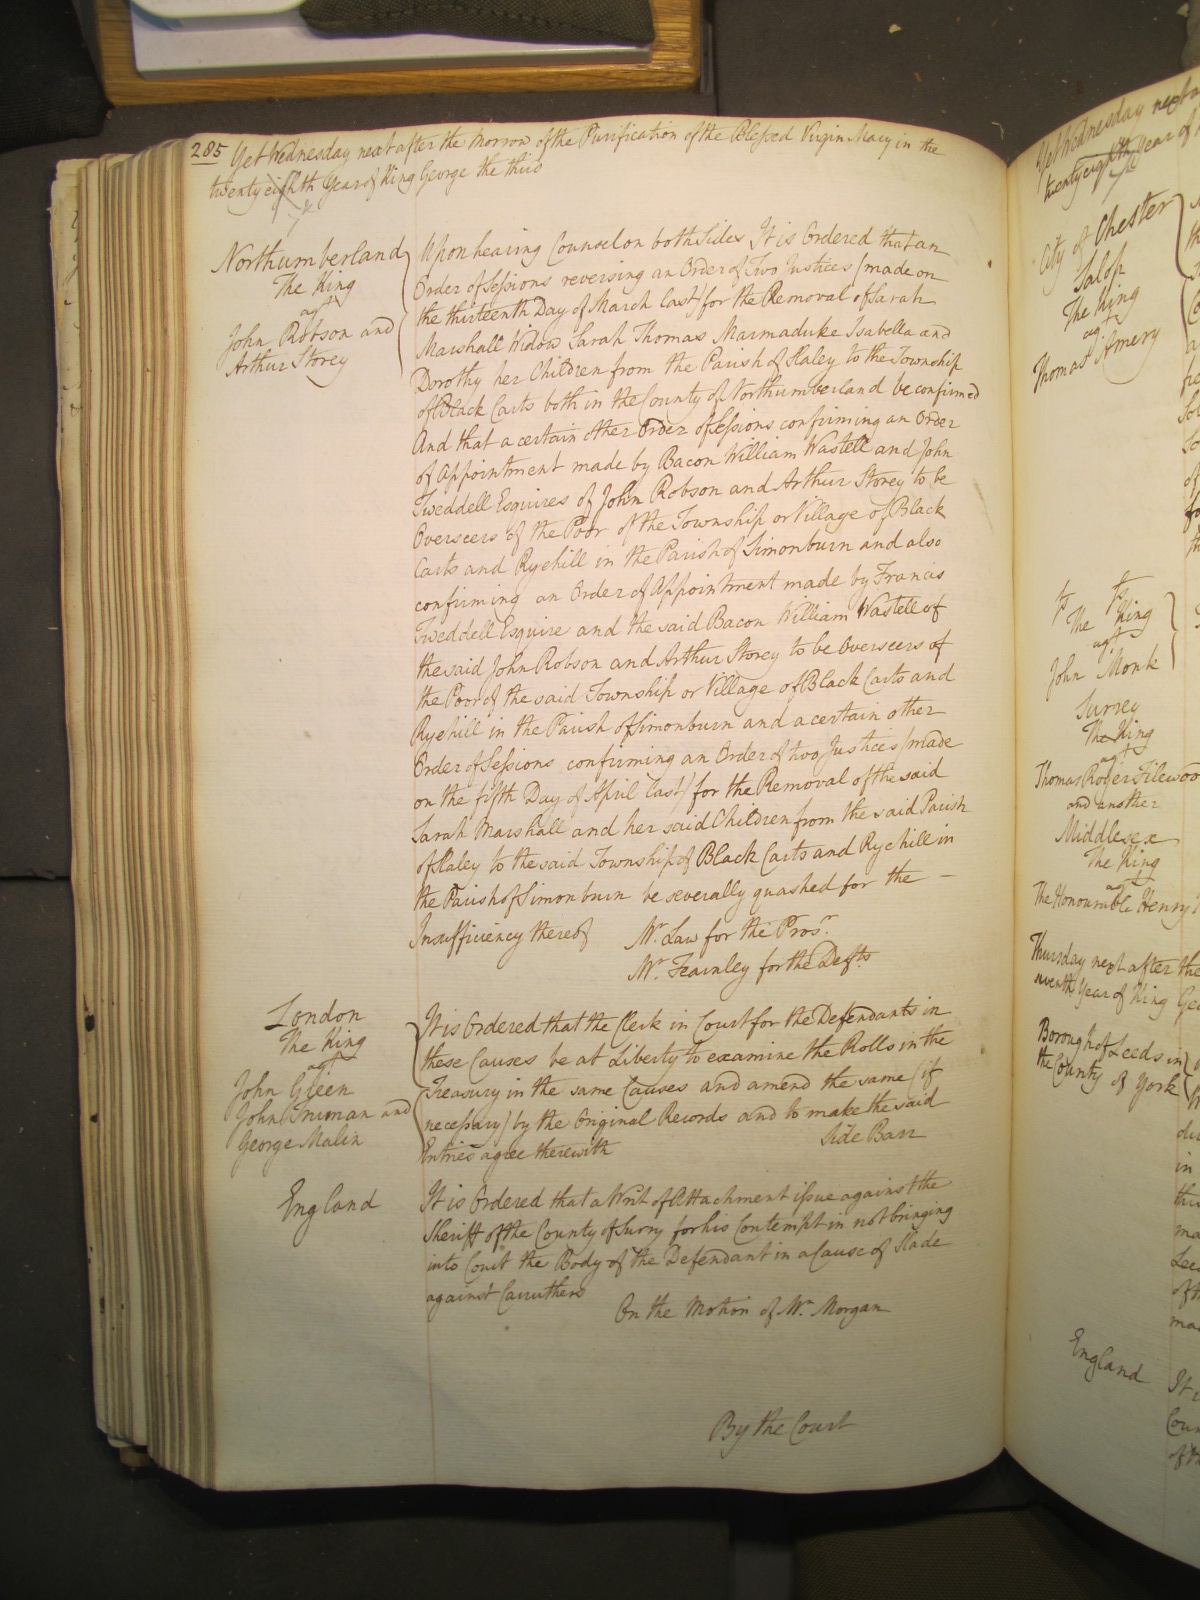 285 Yet Wednesday next after the Morrow of the Purification of the Blessed Virgin Mary in the
twenty eighth Year of King George the third
7th
Northumberland
The King
agt
John Robson and
Arthur Storey
Upon hearing Counsel on both Sides It is Ordered that an
Order of Sessions reversing an Order of Two Justices (made on
the thirteenth Day of March last) for the Removal of Sarah
Marshall Widow Sarah Thomas Marmaduke Isabella and
Dorothy her Children from the Parish of Slaley to the Township
of Black Carts both in the County of Northumberland be confirmed
And that a certain other Order of Sessions confirming an Order
of Appointment made by Bacon William Wastell and John
Tweddell Esquires of John Robson and Arthur Storey to be
Overseers of the Poor of the Township or Village of Black
Carts and Ryehill in the Parish of Simonburn and also
confirming an Order of Appointment made by Francis
Tweddell Esquire and the said Bacon William Wastell of
the said John Robson and Arthur Storey to be Overseers of
the Poor of the said Township or Village of Black Carts and
Ryehill in the Parish of Simonburn and a certain other
Order of Sessions confirming an Order of two Justices (made
on the fifth Day of April last) for the Removal of the said
Sarah Marshall and her said Children from the said Parish
of Slaley to the said Township of Black Carts and Ryehill in
the Parish of Simonburn be severally quashed for the –
Insufficiency thereof Mr. Law for the Prosr.
Mr. Fearnley for the Defts.
London
The King
agt
John Green
John Truman and
George Malin
It is Ordered that the Clerk in Court for the Defendants in
these Causes be at Liberty to examine the Rolls in the
Treasury in the same Causes and amend the same (if
necessary) by the Original Records and to make the said
Entries agree therewith Side Barr
England
It is Ordered that a Writ of Attachment issue against the
Sheriff of the County of Surry for his Contempt in not bringing
into Court the Body of the Defendant in a Cause of Slade
against Carruthers
On the Motion of Mr. Morgan
By the Court
Yet Wednesday next a
twenty eighth Year of
7th
City of Chester
Salop
The King
agt
Thomas Amery
The King
agt
John Monk
Surrey
The King
agt
Thomas Roger Filewood
and another
Middlesex
The King
agt
The Honourable Henry
Thursday next after the
seventh Year of King Geo
Borough of Leeds in
the County of York
England